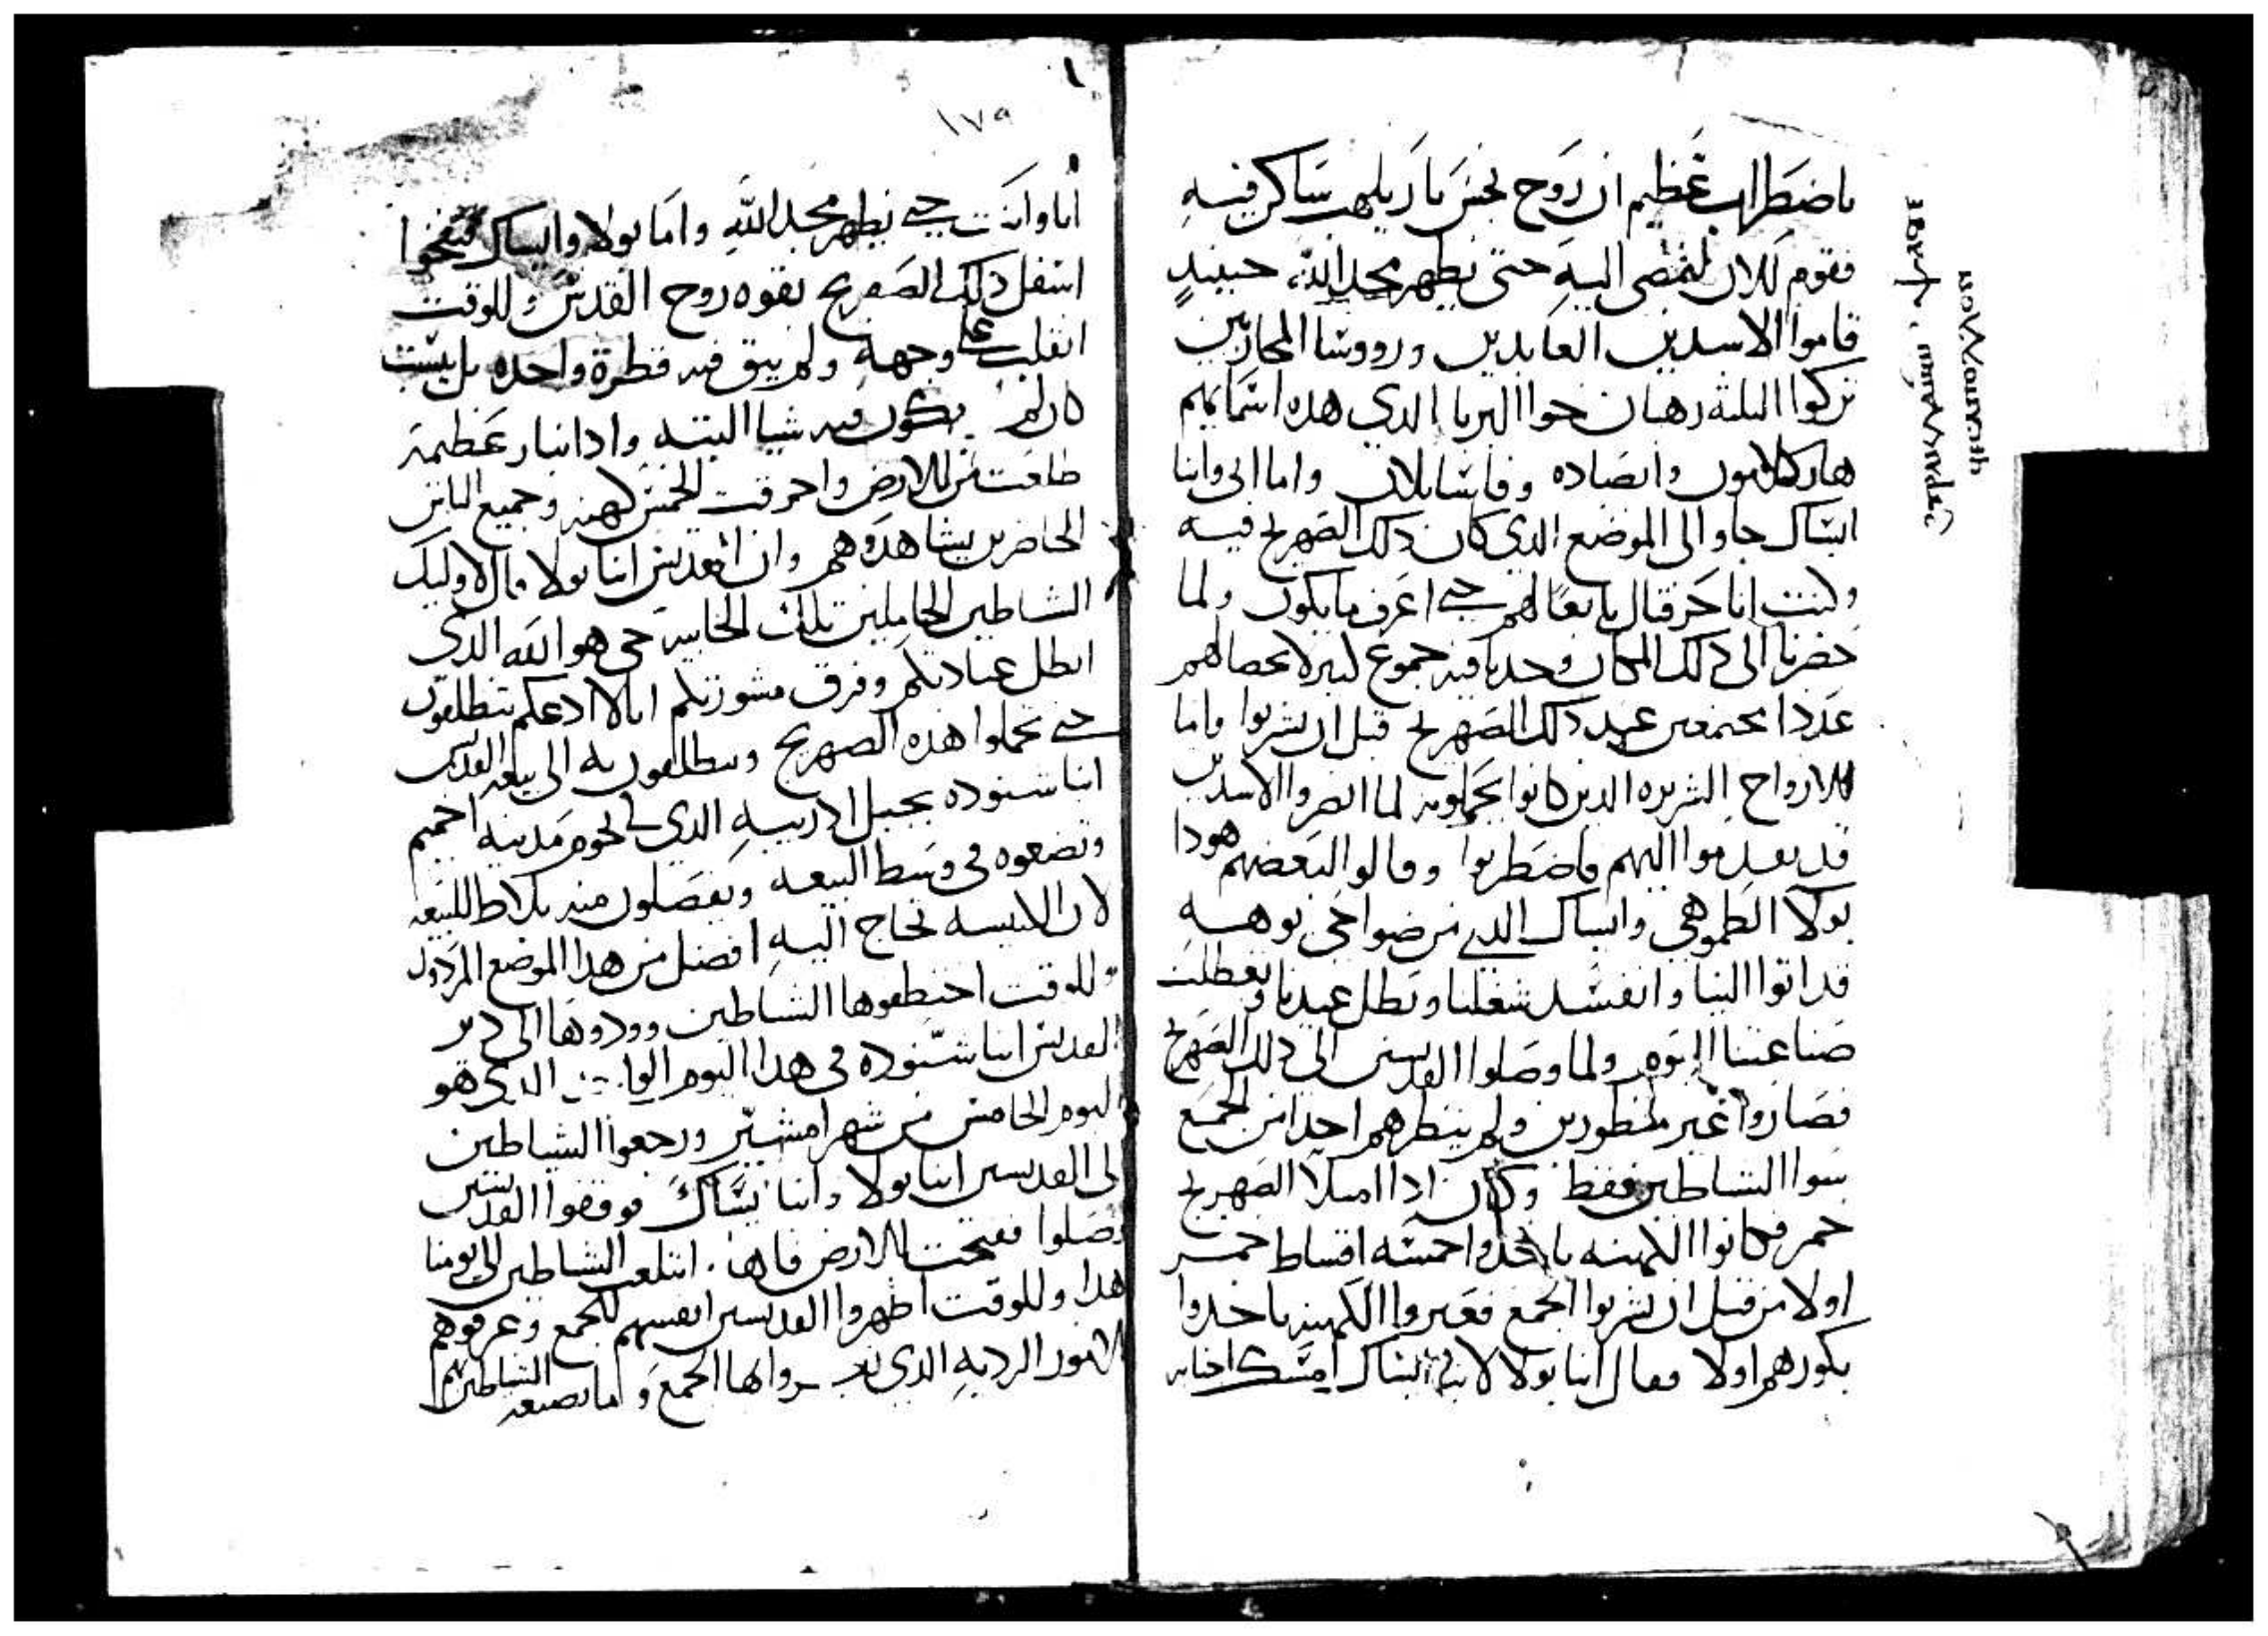 باضطراب عظيم ان روح نجس نار يلهب ساكن فيه
فقوم للان لنمضى اليه حتى نظهر مجد الله حينيدٍ
قاموا الاسدين العابدين ورووسا المحاربين
تركوا التلته رهبان جوا البريا الذي هذه اسمايهم
وابصاده واما ابى وانبا
ابساك جاو الى الموضع الذي كان ذلك الصهريج فيه
وكنت انا حزقيال تابعًا لهم حتى اعرف ما يكون ولما
حضرنا الى ذلك المكان وجدنا فيه جموع كثيره لا يحصا لهم
عددا مجتمعين عند ذلك الصهريج قبل ان يشربوا واما
الارواح الشريره الدين كانوا يحملونه لما ابصروا الاسدين
قد تقدموا اليهم فاضطربوا وقالوا لبعضهم هودا
بولا الطموهي وابساك الدي من ضواحي توهه
قد اتوا الينا وانفسد شغلنا وبطل عيدنا وتعطلت
صناعتنا اليوم ولما وصلوا القديسين الى ذلك الصهريج
فصاروا غير منظورين ولم ينظرهم احدا من الجمع
سوا الشياطين فقط وكان ادا امتلا الصهريج
خمر فكانوا الكهنه ياخدوا خمسه اقساط خمر
اولا من قبل ان يشربوا الجمع فعبروا الكهنه ياخدوا
بكورهم اولا فقال انبا بولا لابى ابساك امسك
١٧٩
انا وانت حتى نظهر مجد الله واما بولا وابساك فنفخوا
اسفل ذلك الصهريج بقوه روح القدس وللوقت
انقلب على وجهه ولم يبق فيه قطرة واحده بل يبست
كان لم يكون فيه شيا البته وادا بنار عظيمه
طلعت من الارض واحرقت الخمس كهنه وجميع الناس
الحاضرين يشاهدوهم وان القديس انبا بولا قال لاوليك
الشياطين الحاملين تلك الخابيه حي هو الله الذي
ابطل عبادتكم وفرق مشورتكم انا لا ادعكم تنطلقون
حتى تحملوا هذه الصهريج وتنطلقون به الى بيعه القديس
انبا سنوده بجبل ادريبه الذي تخوم مدينه اخميم
وتضعوه في وسط البيعه وتفصلون منه بلاط للبيعه
لان الكنيسه تحتاج اليه افضل من هدا الموضع المردول
وللوقت اختطفوها الشياطين وودوها الى دير
القديس انبا شنوده في هدا اليوم الواحد الذي هو
اليوم الخامس من شهر امشير ورجعوا الشياطين
الى القديسين انبا بولا وانبا بساك فوقفوا القديسين
وصلوا ففتحت الارض فاها ابتلعت الشياطين الى يومنا
هدا وللوقت اظهروا القديسين انفسهم للجمع وعرفوهم
الامور الرديه الذي لها الجمع و ما تصنعه الشياطين بهم